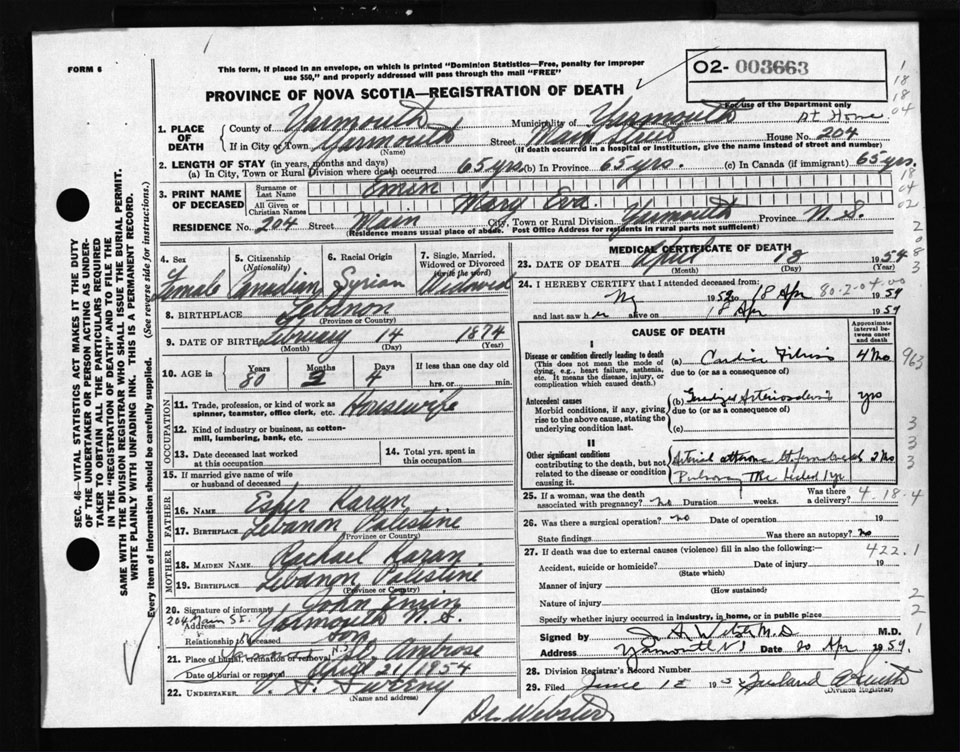 FORM 6
This form, if placed in an envelope, on which is printed "Dominion Statistics—Free, penalty for improper
use $50," and properly addressed will pass through the mail "FREE"
O2- 003663
For use of the Department only
PROVINCE OF NOVA SCOTIA—REGISTRATION OF DEATH
1. PLACE OF DEATH County of Yarmouth Municipality of Yarmouth At Home
If in City or Town Yarmouth (Name) Street Main Street House No. 204
(If death occurred in a hospital or institution, give the name instead of street and number)
2. LENGTH OF STAY (in years, months and days)
(a) In City, Town or Rural Division where death occurred 65 yrs (b) In Province 65 yrs. (c) In Canada (if immigrant) 65 yrs.
3. PRINT NAME OF DECEASED Surname or Last Name Emin
All Given or Christian Names Mary Eva
RESIDENCE No. 204 Street Main City, Town or Rural Division Yarmouth Province N.S.
(Residence means usual place of abode. Post Office Address for residents in rural parts not sufficient)
4. Sex Female
5. Citizenship (Nationality) Canadian
6. Racial Origin Syrian
7. Single, Married, Widowed or Divorced (write the word) Widowed
8. BIRTHPLACE Lebanon
(Province or Country)
9. DATE OF BIRTH February 14 1874
(Month) (Day) (Year)
10. AGE in Years 80 Months 2 Days 4 If less than one day old
hrs. or min.
OCCUPATION
11. Trade, profession, or kind of work as spinner, teamster, office clerk, etc. Housewife
12. Kind of industry or business, as cotton-mill, lumbering, bank, etc.
13. Date deceased last worked at this occupation
14. Total yrs. spent in this occupation
15. If married give name of wife or husband of deceased
FATHER
16. Name Esper Karam
17. Birthplace Lebanon Palestine
(Province or Country)
MOTHER
18. MAIDEN NAME Rachael Karam
19. BIRTHPLACE Lebanon Palestine
(Province or Country)
20. Signature of informant John Emin
Address 204 Main St. Yarmouth N.S.
Relationship to deceased son
21. Place of burial, cremation or removal Yarmouth N.S. Ambrose
Date of burial or removal April 21/1954
22. UNDERTAKER V. S. Sweeny
(Name and address)
Dr. Webster
MEDICAL CERTIFICATE OF DEATH
23. DATE OF DEATH April 18 1954
(Month) (Day) (Year)
24. I HEREBY CERTIFY that I attended deceased from:
1952 to 18 Apr 1954
80-2-04-00
and last saw her alive on 18 Apr 1954
CAUSE OF DEATH
Approximate interval between onset and death
I
Disease or condition directly leading to death
(This does not mean the mode of dying, e.g., heart failure, asthenia, etc. It means the disease, injury, or complication which caused death.)
(a) Cardiac 4 Mo
due to (or as a consequence of)
963
Antecedent causes
Morbid conditions, if any, giving rise to the above cause, stating the underlying condition last.
(b) Arteriosclerosis yrs
due to (or as a consequence of)
(c)
II
Other significant conditions
contributing to the death, but not related to the disease or condition causing it.
Arterial 2 Mo
Pulmonary
25. If a woman, was the death associated with pregnancy? no Duration weeks. Was there a delivery?
4-18-4
26. Was there a surgical operation? no Date of operation 19
State findings Was there an autopsy? no
27. If death was due to external causes (violence) fill in also the following:— 422.1
Accident, suicide or homicide? Date of injury 19
(State which)
Manner of injury
(How sustained)
Nature of injury
Specify whether injury occurred in industry, in home, or in public place
Signed by M.D. M.D.
Address Yarmouth NS Date 20 Apr 1954.
28. Division Registrar's Record Number
29. Filed June 12 1954
(Division Registrar)
SEC. 46—VITAL STATISTICS ACT MAKES IT THE DUTY
OF THE UNDERTAKER OR PERSON ACTING AS UNDER-
TAKER TO OBTAIN ALL THE PARTICULARS REQUIRED
IN THE "REGISTRATION OF DEATH" AND TO FILE THE
SAME WITH THE DIVISION REGISTRAR WHO SHALL ISSUE THE BURIAL PERMIT.
WRITE PLAINLY WITH UNFADING INK. THIS IS A PERMANENT RECORD.
Every item of information should be carefully supplied. (See reverse side for instructions.)